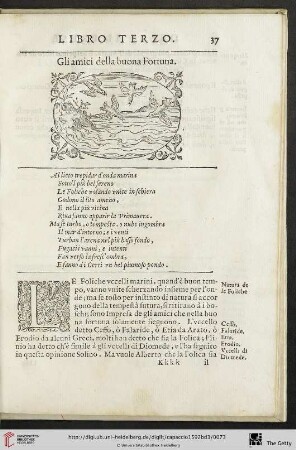 LIBRO TERZO. 37
Gli amici della buona Fortuna.
Al lieto trepidar d'onda marina
Sono'l più bel sereno
Le Foliche volando unite in schiera
Godono il sito ameno,
E nella più vicina
Riua fanno apparir la Primauera.
Ma se turbo, o tempesta, o nube ingombra
Il mar d'intorno; e i venti
Turban l'arena nel più basso fondo,
Fugaci vanno, e intente
Far verso la fresc'ombra,
E fanno di
LE Foliche vcelli marini, quand'è buon tem-
po, vanno vnite scherzando insieme per l'on-
de; ma se tosto per instinto di natura si accor
gono della tempesta futura, si ritirano à i bo-
schi; sono Impresa de gli amici che nella buo
na fortuna solamente seguono. L'vccello
detto Ceffo, ò Falaride, ò Etia da Arato, ò
Erodio da alcuni Greci, molti han detto che sia la Folica. Pli-
nio ha detto ch'è simile à gli vccelli di Diomede, & l'ha seguito
in questa opinione Solino. Ma vuole Alberto che la Folica sia
Kkkk il
Natura de
le Foliche
Ceffo,
Falaride,
Etia,
Erodio.
Vccelli di
Diomede.
http://digi.ub.uni-heidelberg.de/diglit/capaccio1592bd3/0073
© Universitätsbibliothek Heidelberg
The Getty